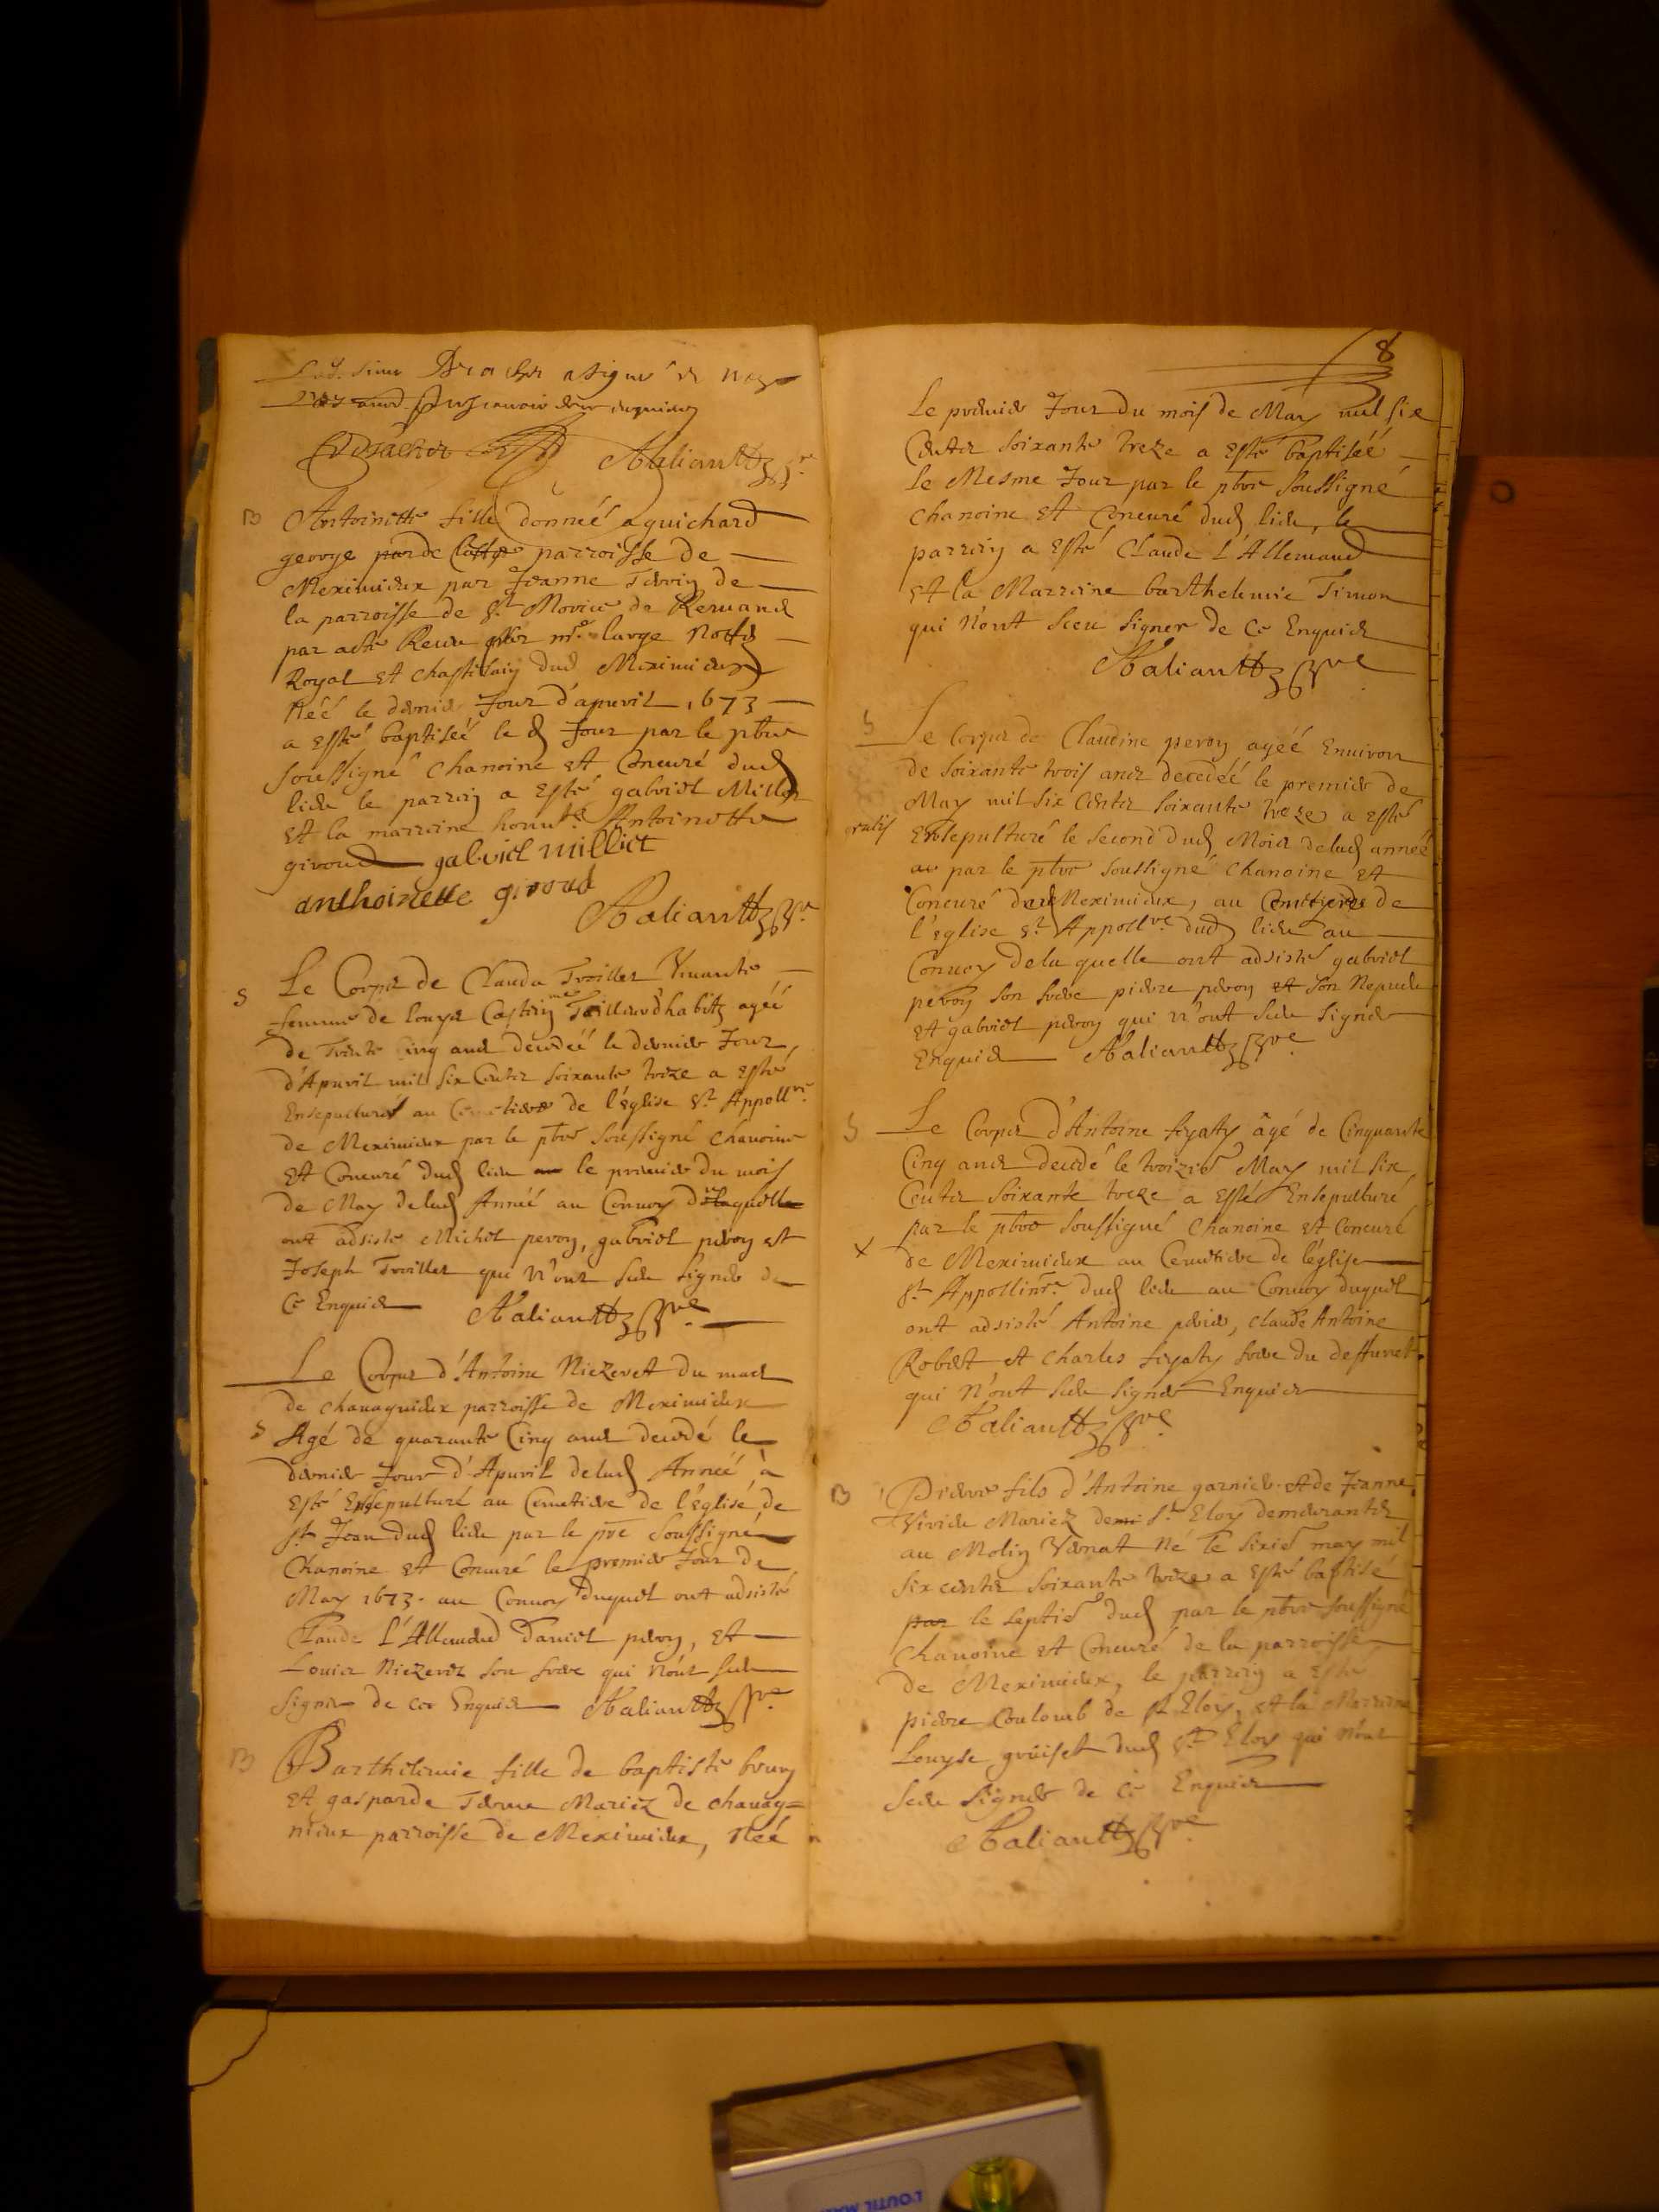 Led. sieur a signé et non
enquis
Aaliantz pbre
B Antoinette fille donnéé a guichard
george parroisse de
Meximieux par Jeanne de
la parroisse de St Morice de Remand
par acte Receu mre large notte
Royal et Chastelain dud Meximieux
Néé le dernier Jour d'apuril 1673
a esté baptiséé le d Jour par le pbre
soussigné Chanoine et Concuré dud
lieu le parrein a esté gabriel Millet
et la marreine honnte Antoinette
giroud gabriel milliet
anthoinette giroud
Aaliantz pbre
S Le Corps de Clauda Troillet Viuante
femme de Louys Castin me Tailleur d'habitz agéé
de Trente Cinq ans decedéé le dernier Jour
d'Apuril mil six Centz soixante treze a esté
Ensepulturé au Cemetiere de l'église St Appollre
de Meximieux par le pbre soussigné Chanoine
et Concuré dud lieu le premier du mois
de May delad Année au Conuoy
ont adsisté Michel peroy, gabriel peroy et
Joseph Troillet qui n'ont sceu signer de
Ce Enquis Aaliantz pbre
Le Corps d'Antoine Niezeret du mas
de chauagnieux parroisse de Meximieux
S Agé de quarante Cinq ans decedé le
dernier Jour d'Apuril delad Année a
esté Ensepulturé au Cemetiere de l'église de
St Jean dud lieu par le pre soussigné
Chanoine et Concuré le premier Jour de
May 1673. au Conuoy duquel ont adsisté
Claude L'Allemand Daniel peroy, et
Louis Niezeret son frere qui n'ont sceu
signer de ce Enquis Aaliantz pbre
B Barthelemie fille de baptiste bourg
et gasparde Mariez de chauag=
nieux parroisse de Meximieux, Néé
8
Le premier Jour du mois de May mil six
Centz soixante treze a esté baptiséé
le Mesme Jour par le pbre soussigné
Chanoine et Concuré dud lieu, le
parrein a esté Claude L'Allemand
et la Marreine barthelemie Timon
qui n'ont sceu signer de Ce Enquis
Aaliantz pbre
S Le Corps de Claudine peroy agéé Enuiron
de soixante trois ans decedéé le premier de
May mil six Centz soixante treze a esté
gratis Ensepulturé le second dud Mois delad année
par le pbre soussigné Chanoine et
Concuré dud Meximieux, au Cemetiere de
l'église St Appollre dud lieu au
Conuoy dela quelle ont adsisté gabriel
peroy son frere pierre peroy et son Nepueu
et gabriel peroy qui n'ont sceu signer
Enquis Aaliantz pbre
S Le Corps d'Antoine fiyatty âgé de Cinquante
Cinq ans decedé le troizie May mil six
Centz soixante treze a esté Ensepulturé
par le pbre soussigné Chanoine et Concuré
x de Meximieux au Cemetiere de l'église
St Appollinre dud lieu au Conuoy duquel
ont adsisté Antoine perier, Claude Antoine
Robert et Charles fiyaty frere du deffunct
qui n'ont sceu signer Enquis
Aaliantz pbre
B Pierre fils d'Antoine garnier et de Jeanne
Viuier Mariez de St Eloy demeurantz
au Molin Vernat Né le sixie may mil
six centz soixante treze a esté baptisé
par le septie dud par le pbre soussigné
Chanoine et Concuré de la parroisse
de Meximieux, le parrein a esté
pierre Coulomb de St Eloy, et la Marreine
Louyse gruiset dud St Eloy qui n'ont
sceu signer de Ce Enquis
Aaliantz pbre
L'OUTIL